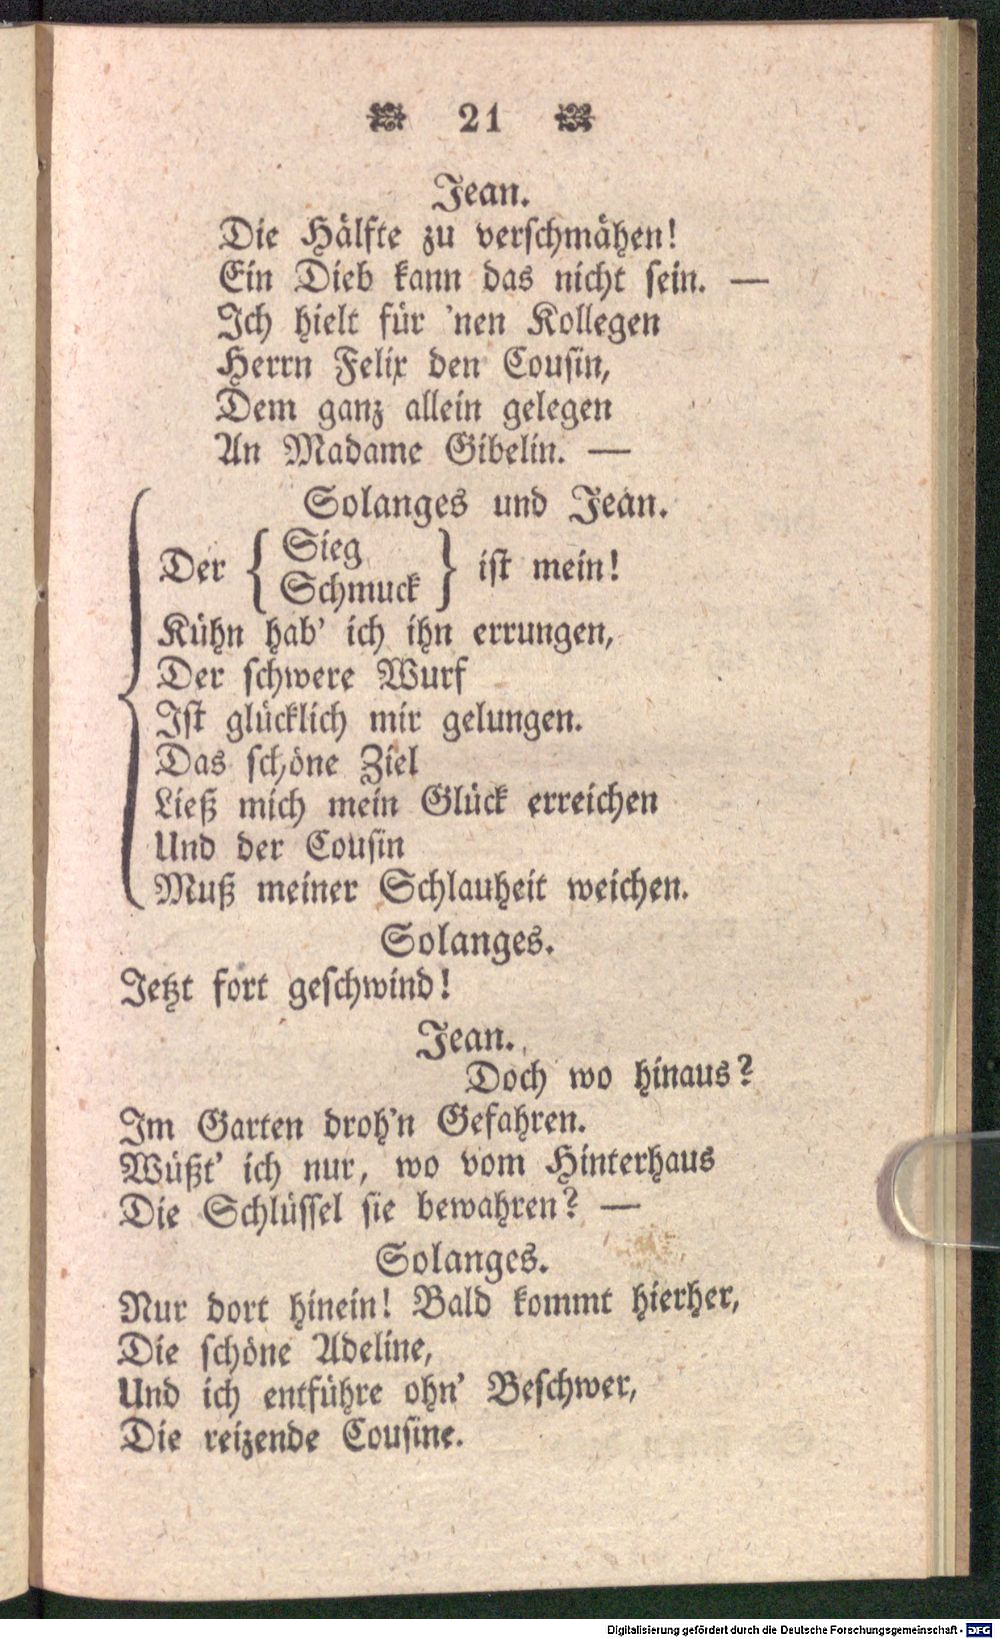 21
Jean.
Die Hälfte zu verschmähen!
Ein Dieb kann das nicht sein. —
Ich hielt für 'nen Kollegen
Herrn Felix den Cousin,
Dem ganz allein gelegen
An Madame Gibelin. —
Solanges und Jean.
Der { Sieg
Schmuck } ist mein!
Kühn hab' ich ihn errungen,
Der schwere Wurf
Ist glücklich mir gelungen.
Das schöne Ziel
Ließ mich mein Glück erreichen
Und der Cousin
Muß meiner Schlauheit weichen.
Solanges.
Jetzt fort geschwind!
Jean.
Doch wo hinaus?
Im Garten droh'n Gefahren.
Wüßt' ich nur, wo vom Hinterhaus
Die Schlüssel sie bewahren? —
Solanges.
Nur dort hinein! Bald kommt hierher,
Die schöne Adeline,
Und ich entführe ohn' Beschwer,
Die reizende Cousine.
Digitalisierung gefördert durch die Deutsche Forschungsgemeinschaft - DFG